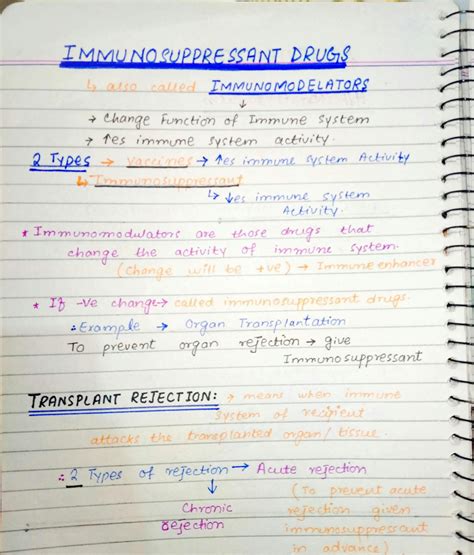 IMMUNOSUPPRESSANT DRUGS
↳ also called IMMUNOMODELATORS
→ Change Function of Immune System
→ ↑es immune system activity.
2 Types → vaccines → ↑es immune System Activity
↳ Immunosuppressant
↳ ↓es immune system
Activity.
* Immunomodulators are those drugs that
change the activity of immune system.
(Change will be +ve) → Immune enhancer
* If -ve change → called immunosuppressant drugs.
∴ Example → Organ Transplantation
To prevent organ rejection → give
Immunosuppressant
TRANSPLANT REJECTION: → means when immune
system of recipient
attacks the transplanted organ/tissue.
∴ 2 Types of rejection → Acute rejection
↓
Chronic
Rejection
(To prevent acute
rejection given
immunosuppressant
in advance)